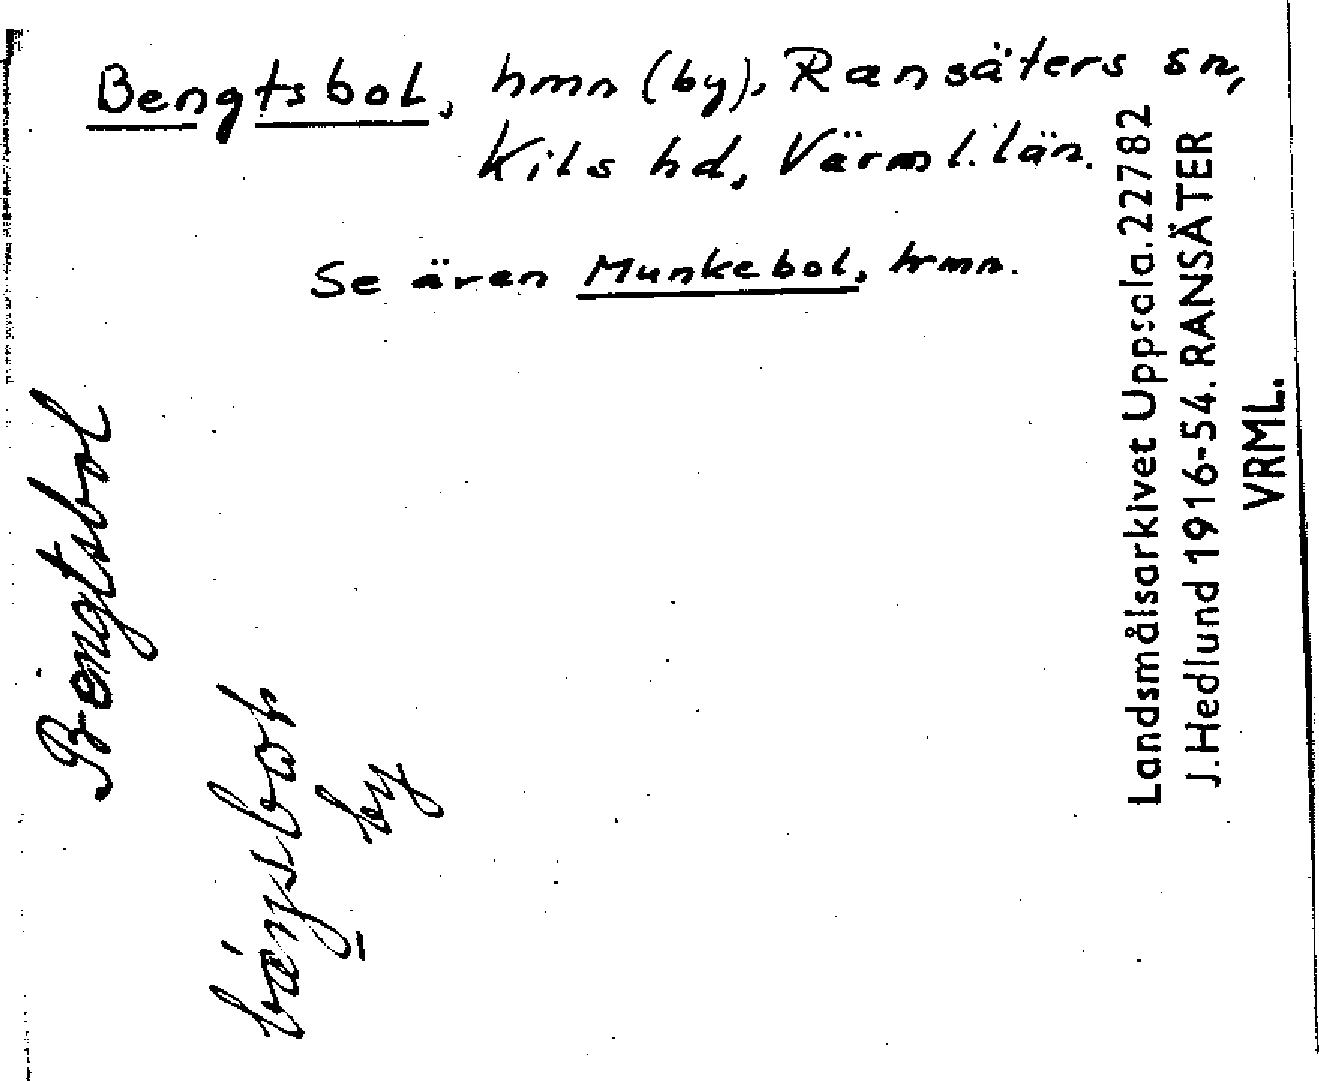 Bengtsbol, hmn (by), Ransäters sn,
Kils hd, Värml. län.
Se även Munkebol, hmn.
Bengtsbol
by
Landsmålsarkivet Uppsala. 22782
J. Hedlund 1916-54. RANSÄTER
VRML.